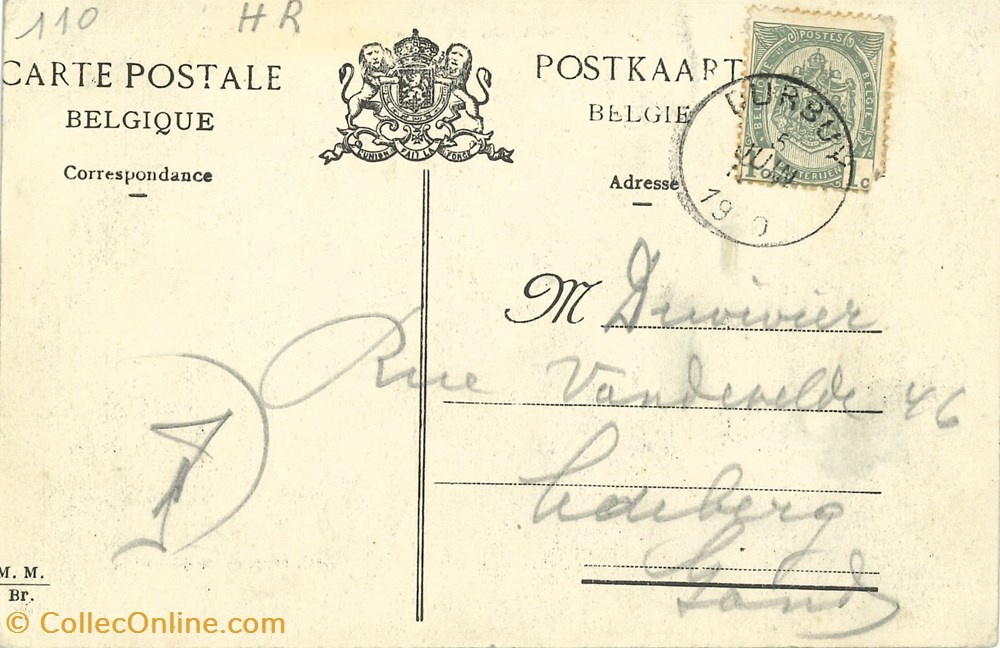 110 HR
CARTE POSTALE
BELGIQUE
Correspondance
L'UNION FAIT LA FORCE
POSTKAART
BELGIE
Adresse
POSTES
BELGIQUE
BELGIE
1 c
DURBUY
5
JUIN
19 0
M Duvivier
Rue Vandevelde 46
Ledeberg
Gand
M. M.
Br.
© CollecOnline.com